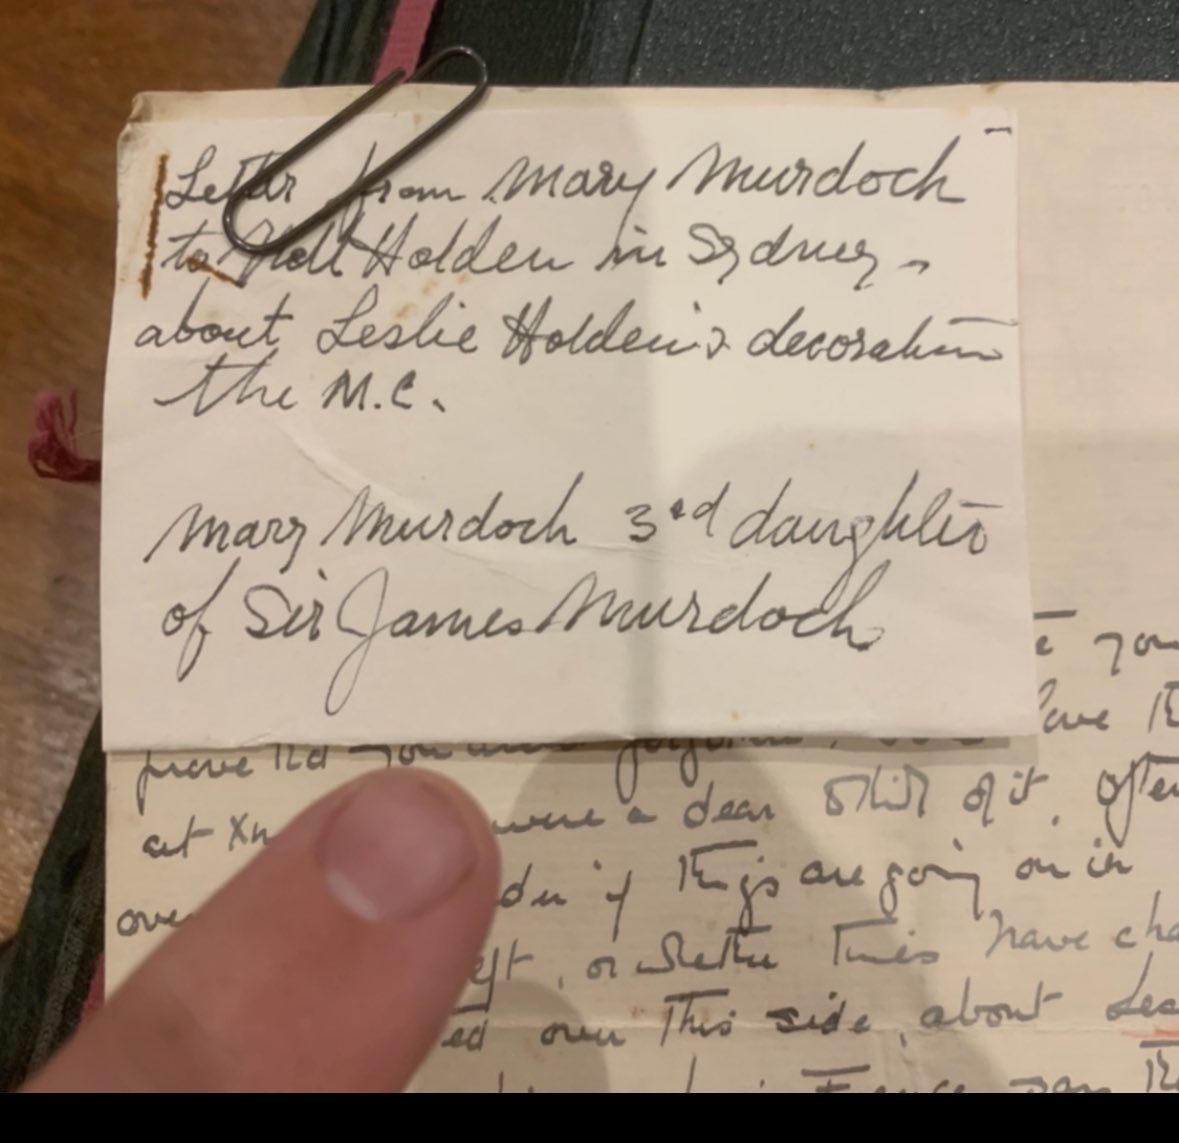 Letter from Mary Murdoch
to Holden in Sydney -
about Leslie Holden's decoration
the M.C.
Mary Murdoch 3rd daughter
of Sir James Murdoch
you
have
prove you
at Xm were a dear of it. Often
over if things are going on in
or whether times have cha
ed over this side, about Les